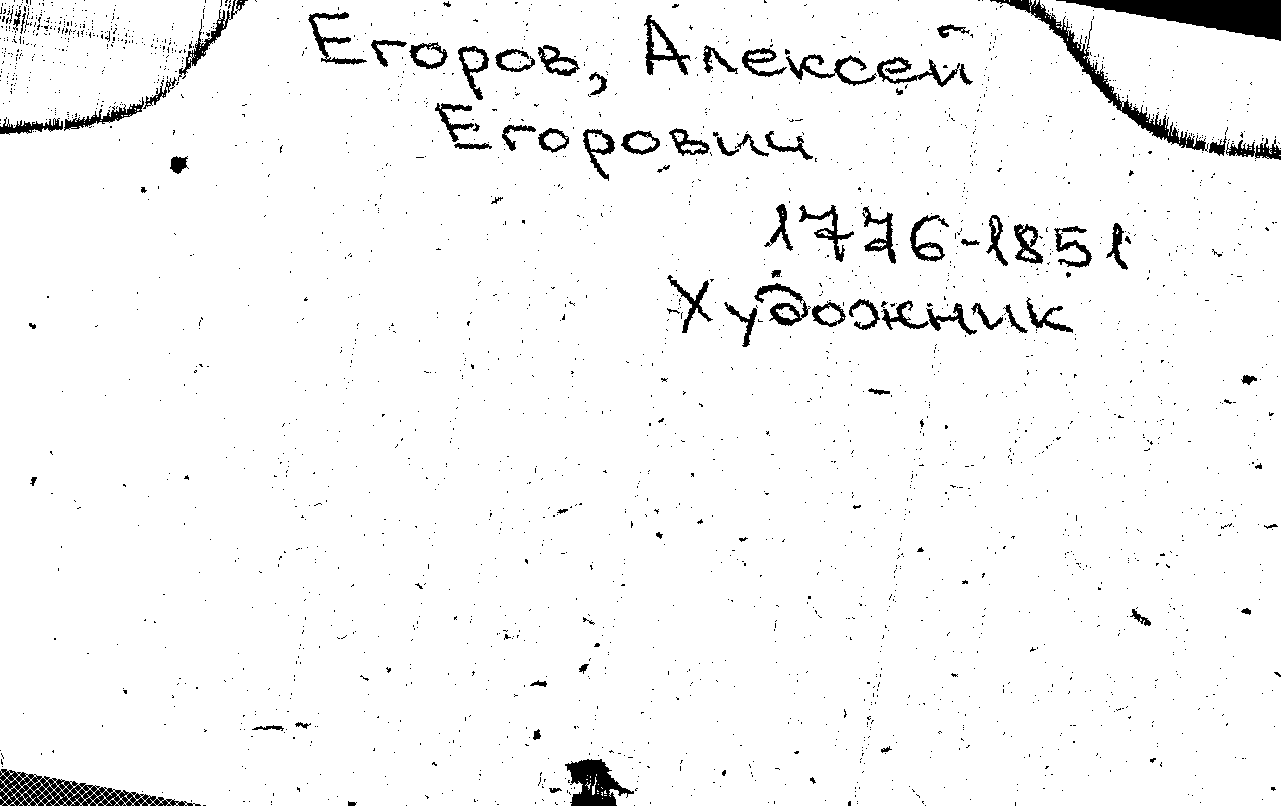 Егоров, Алексей
Егорович
1776-1851
Художник